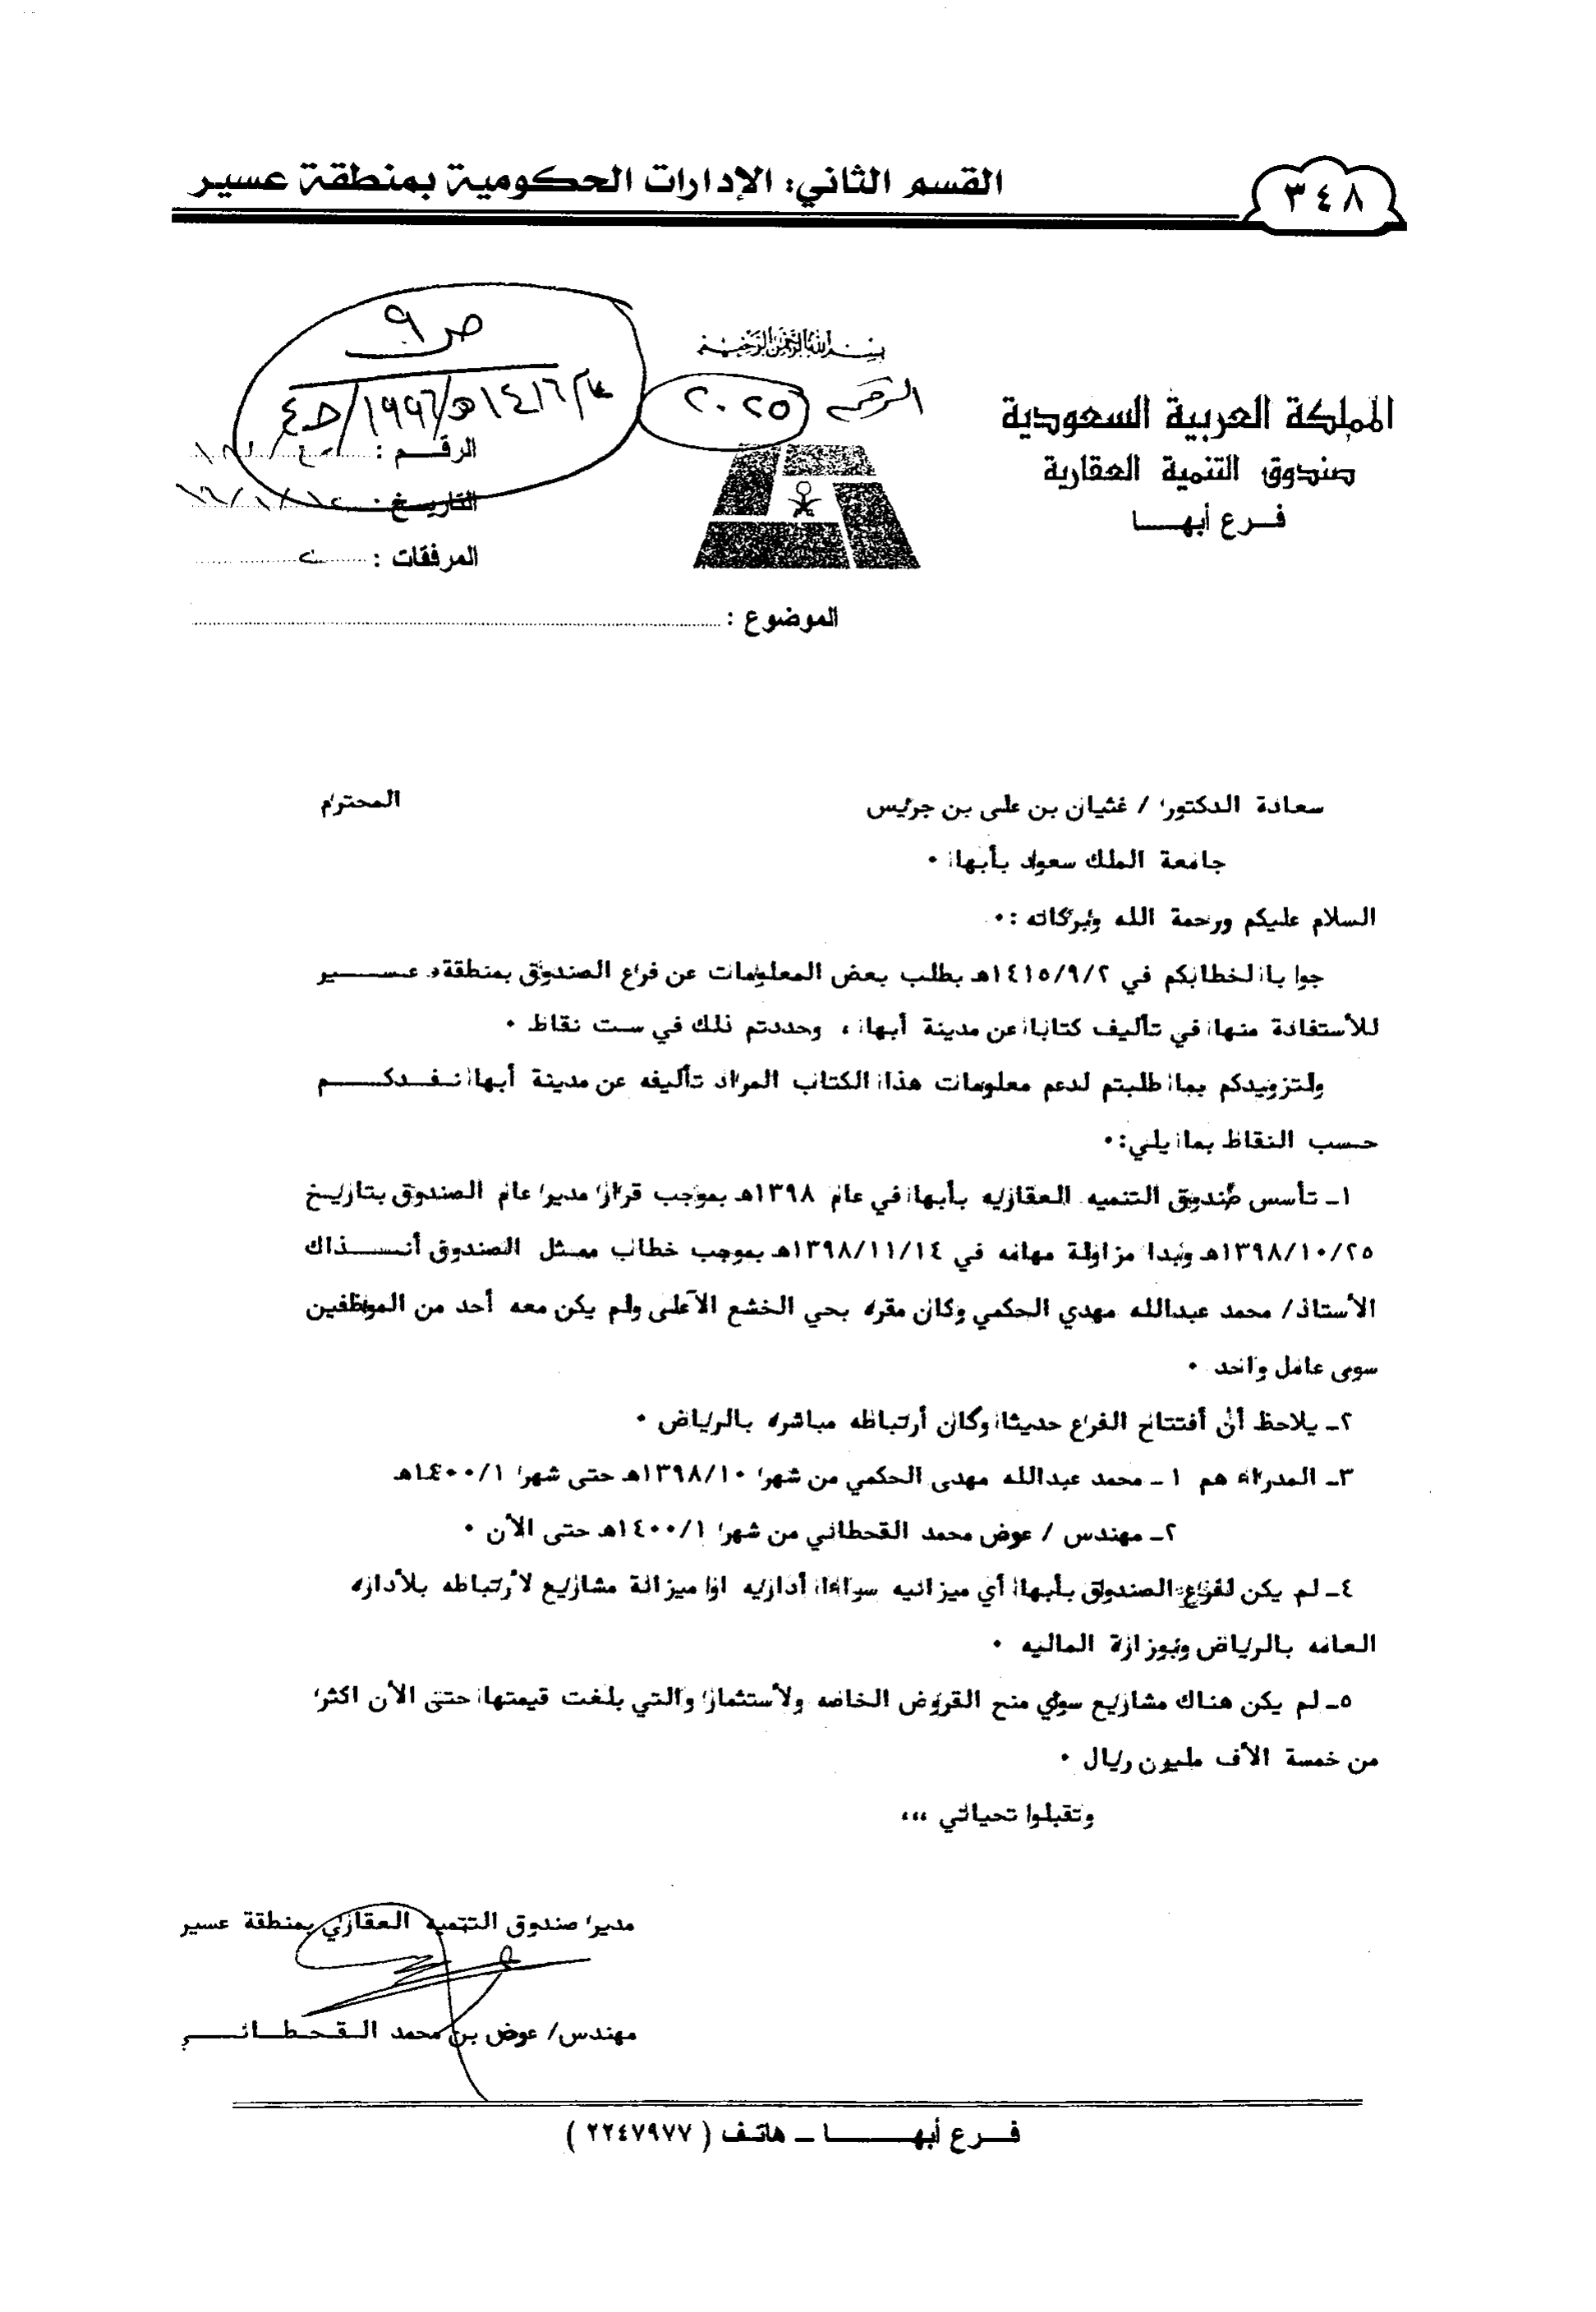 ٣٤٨
القسم الثاني: الإدارات الحكومية بمنطقة عسير
المملكة العربية السعودية
صندوق التنمية العقارية
فرع أبهـــا
بسم الله الرحمن الرحيم
٢٠٢٥
ص ٩
١٤١٦هـ/١٩٩٦/
الرقـــم :
التاريـــخ :
المرفقات :
الموضوع :
سعادة الدكتور / غثيان بن على بن جريس المحترم
جامعة الملك سعود بأبها ٠
السلام عليكم ورحمة الله وبركاته :٠
جوابا لخطابكم في ١٤١٥/٩/٢هـ بطلب بعض المعلومات عن فرع الصندوق بمنطقة عـــسـير
للأستفادة منها في تأليف كتابا عن مدينة أبها ، وحددتم ذلك في ست نقاط ٠
ولتزويدكم بما طلبتم لدعم معلومات هذا الكتاب المراد تأليفه عن مدينة أبها نـفـدكـــــم
حسب النقاط بما يلي:٠
١ـ تأسس صندوق التنميه العقاريه بأبها في عام ١٣٩٨هـ بموجب قرار مدير عام الصندوق بتاريـخ
١٣٩٨/١٠/٢٥هـ وبدا مزاولة مهامه في ١٣٩٨/١١/١٤هـ بموجب خطاب ممثل الصندوق أنـــــذاك
الأستاذ/ محمد عبدالله مهدي الحكمي وكان مقره بحي الخشع الآعلى ولم يكن معه أحد من الموظفين
سوى عامل واحد ٠
٢ـ يلاحظ أن أفتتاح الفرع حديثا وكان أرتباطه مباشره بالرياض ٠
٣ـ المدراء هم ١ـ محمد عبدالله مهدى الحكمي من شهر ١٣٩٨/١٠هـ حتى شهر ١٤٠٠/١هـ
٢ـ مهندس / عوض محمد القحطاني من شهر ١٤٠٠/١هـ حتى الأن ٠
٤ـ لم يكن لفرع الصندوق بأبها أي ميزانيه سواءا أداريه اوا ميزانة مشاريع لأرتباطه بلأداره
العامه بالرياض وبوزارة الماليه ٠
٥ـ لم يكن هناك مشاريع سوى منح القروض الخاصه ولأستثمار والتي بلغت قيمتها حتى الأن اكثر
من خمسة الأف مليون ريال ٠
وتقبلوا تحياتي ،،،
مدير صندوق التنميه العقاري بمنطقة عسير
مهندس/ عوض بن محمد الـقـحـطـانـــــي
فـــرع أبهـــــــا ــ هاتف ( ٢٢٤٧٩٧٧ )